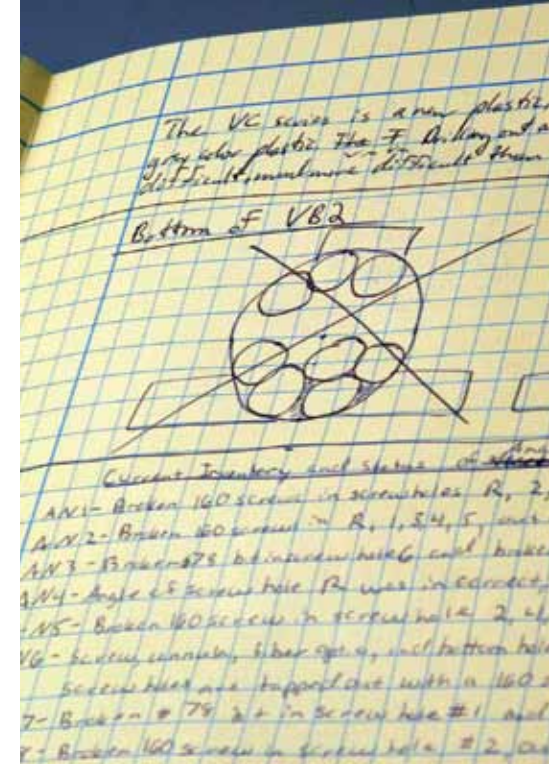 The VC series is a new plastic,
gray color plastic. The
difficult, much more difficult than
Bottom of VB2
Current Inventory and status of
AN1- Broken 160 screws in screwholes R, 2,
AN2- Broken 160 screws in R, 1, 3, 4, 5, and
AN3- Broken #78 bit in screw hole 6 and broke
AN4- Angle of screw hole R was incorrect,
N5- Broken 160 screw in screw hole 2, 4,
N6- Screw, cannula, fiber optic, and bottom hole
screw holes are tapped out with a 160 s
7- Broken # 78 bit in screw hole #1 and
8- Broken 160 screw in screw hole #2, a